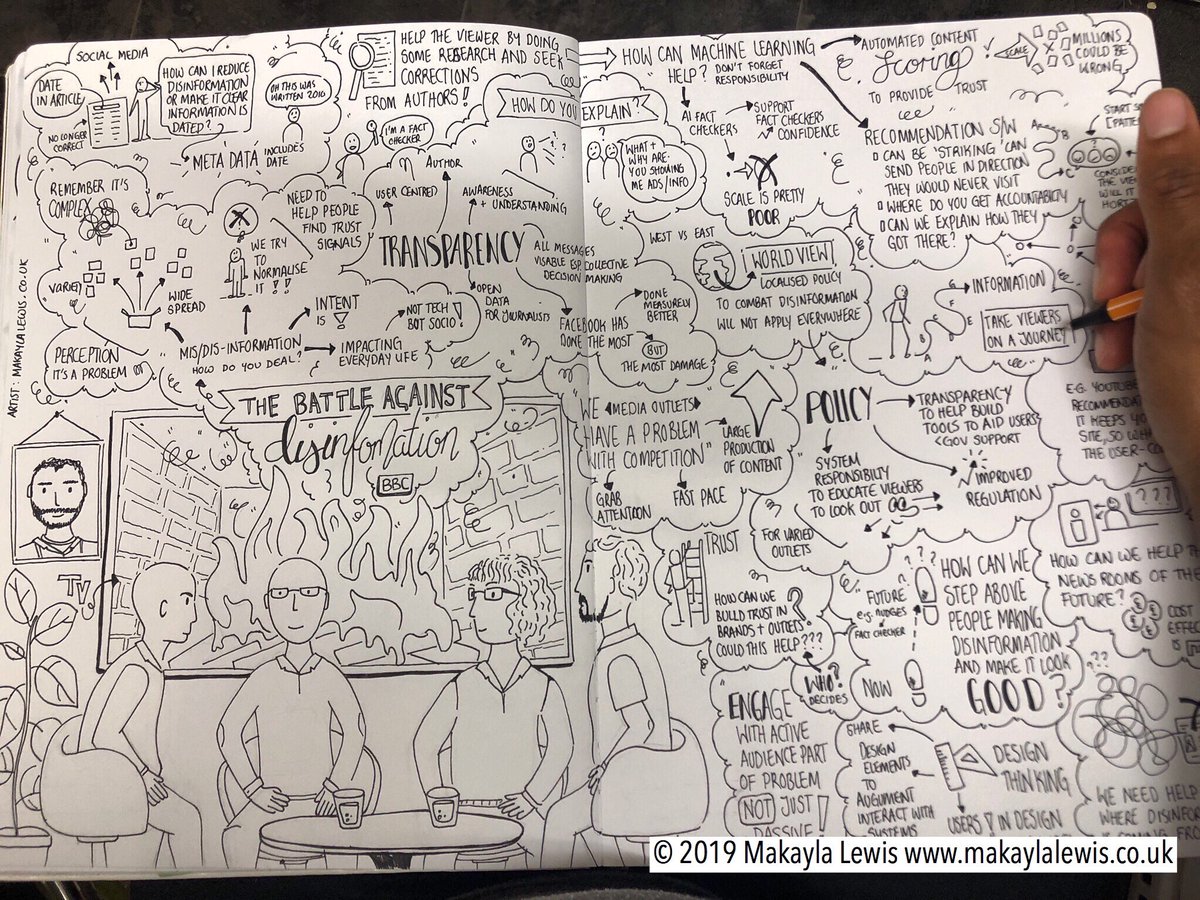 SOCIAL MEDIA
DATE
IN ARTICLE
NO LONGER
CORRECT
HOW CAN I REDUCE
DISINFORMATION
OR MAKE IT CLEAR
INFORMATION IS
DATED?
OH THIS WAS
WRITTEN 2010
META DATA INCLUDES
DATE
HELP THE VIEWER BY DOING
SOME RESEARCH AND SEEK
CORRECTIONS
FROM AUTHORS!
I'M A FACT
CHECKER
HOW DO YOU EXPLAIN?
WHAT +
WHY ARE
YOU SHOWING
ME ADS/INFO
REMEMBER IT'S
COMPLEX
VARIETY
WIDE
SPREAD
WE TRY
TO
NORMALISE
IT!!
NEED TO
HELP PEOPLE
FIND TRUST
SIGNALS
AUTHOR
USER CENTRED
AWARENESS
+ UNDERSTANDING
TRANSPARENCY
ALL MESSAGES
VISABLE ESP COLLECTIVE
DECISION MAKING
OPEN
DATA
FOR JOURNALISTS
FACEBOOK HAS
DONE THE MOST
DONE
MEASURELY
BETTER
BUT
THE MOST DAMAGE?
INTENT
IS !
NOT TECH
BOT SOCIO!
MIS/DIS-INFORMATION
HOW DO YOU DEAL?
IMPACTING
EVERYDAY LIFE
PERCEPTION
IT'S A PROBLEM
ARTIST: MAKAYLALEWIS.CO.UK
THE BATTLE AGAINST
disinfomation
BBC
TV
HOW CAN MACHINE LEARNING
HELP?
DON'T FORGET
RESPONSIBILITY
AI FACT
CHECKERS
SUPPORT
FACT CHECKERS
CONFIDENCE
SCALE IS PRETTY
POOR
AUTOMATED CONTENT
Scoring
TO PROVIDE TRUST
SCALE
MILLIONS
COULD BE
WRONG
RECOMMENDATION S/W
CAN BE 'STRIKING' CAN
SEND PEOPLE IN DIRECTION
THEY WOULD NEVER VISIT
WHERE DO YOU GET ACCOUNTABILITY
CAN WE EXPLAIN HOW THEY
GOT THERE?
WEST VS EAST
WORLD VIEW
LOCALISED POLICY
TO COMBAT DISINFORMATION
WILL NOT APPLY EVERYWHERE
INFORMATION
A
B
E
F
G
TAKE VIEWERS
ON A JOURNEY
WE MEDIA OUTLETS
HAVE A PROBLEM
WITH COMPETITION"
LARGE
PRODUCTION
OF CONTENT
GRAB
ATTENTION
FAST PACE
POLICY
TRANSPARENCY
TO HELP BUILD
TOOLS TO AID USERS
<GOV SUPPORT
SYSTEM
RESPONSIBILTY
TO EDUCATE VIEWERS
TO LOOK OUT
IMPROVED
REGULATION
FOR VARIED
OUTLETS
E.G. YOUTUBE
IT KEEPS
TRUST
HOW CAN WE
BUILD TRUST IN
BRANDS + OUTLETS
COULD THIS HELP???
WHO?
DECIDES
FUTURE
e.g. NUDGES
FACT CHECKER
NOW
HOW CAN WE
STEP ABOVE
PEOPLE MAKING
DISINFORMATION
AND MAKE IT LOOK
GOOD?
???
HOW CAN WE HELP
NEWS ROOMS OF THE
FUTURE?
COST
ENGAGE
WITH ACTIVE
AUDIENCE PART
OF PROBLEM
NOT JUST
PASSIVE
SHARE
DESIGN
ELEMENTS
TO
AUGUMENT
INTERACT WITH
SYSTEMS
DESIGN
THINKING
USERS! IN DESIGN
WE NEED HELP
WHERE
© 2019 Makayla Lewis www.makaylalewis.co.uk